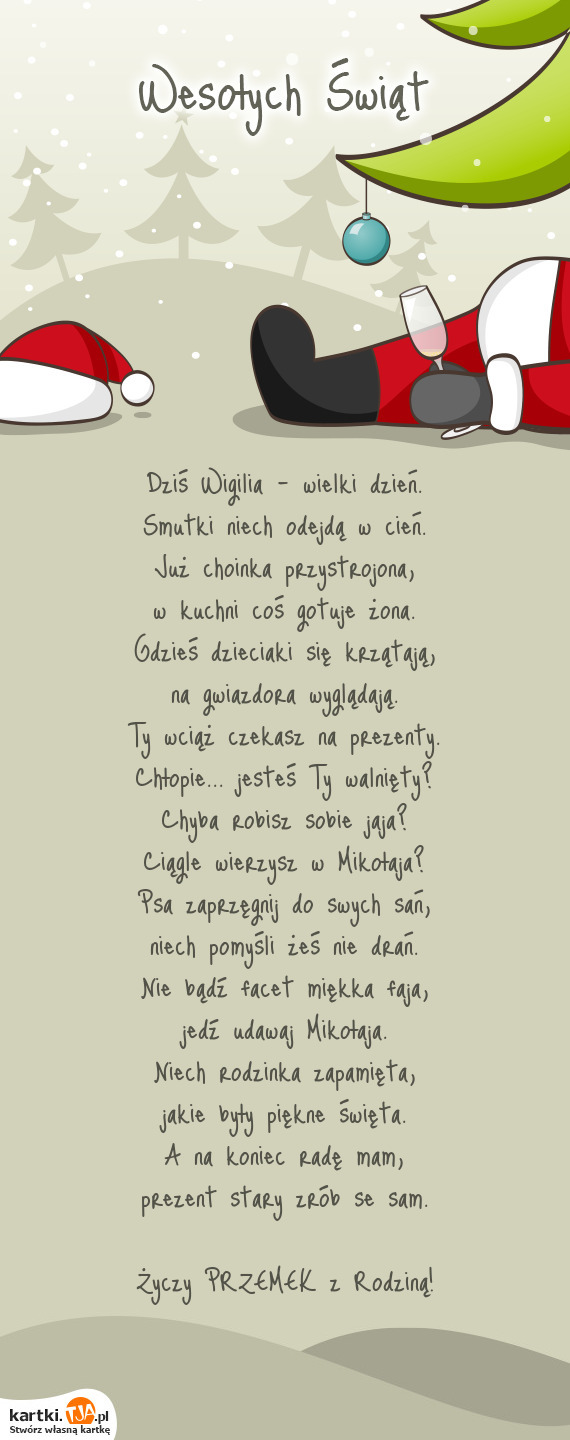 Wesołych Świąt
Dziś Wigilia - wielki dzień.
Smutki niech odejdą w cień.
Już choinka przystrojona,
w kuchni coś gotuje żona.
Gdzieś dzieciaki się krzątają,
na gwiazdora wyglądają.
Ty wciąż czekasz na prezenty.
Chłopie... jesteś Ty walnięty?
Chyba robisz sobie jaja?
Ciągle wierzysz w Mikołaja?
Psa zaprzęgnij do swych sań,
niech pomyśli żeś nie drań.
Nie bądź facet miękka faja,
jedź udawaj Mikołaja.
Niech rodzinka zapamięta,
jakie były piękne święta.
A na koniec radę mam,
prezent stary zrób se sam.
Życzy PRZEMEK z Rodziną!
kartki.TJA.pl
Stwórz własną kartkę